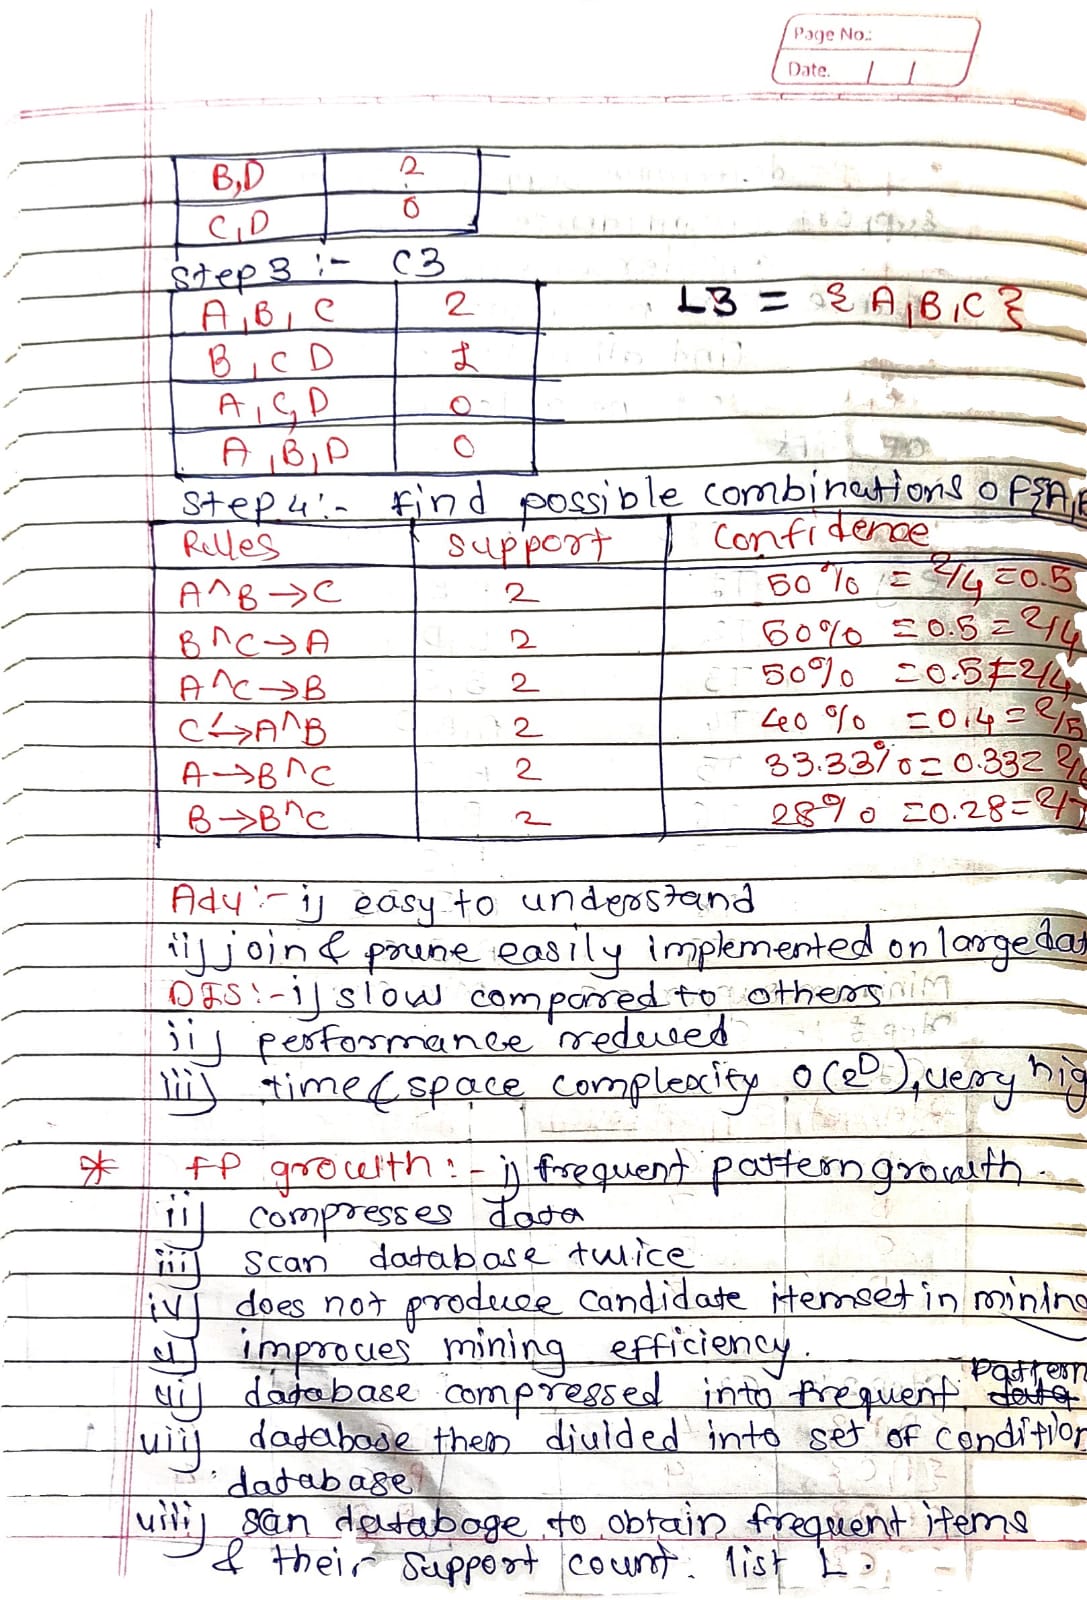 Page No.:
Date. / /
B,D 2
C,D 0
Step 3 :- C3
A,B,C 2 L3 = {A,B,C}
B,C D 1
A,C,D 0
A,B,D 0
Step 4:- find possible combinations of {A,B
Rules Support Confidence
A^B→C 2 50% = 2/4 = 0.5
B^C→A 2 50% = 0.5 = 2/4
A^C→B 2 50% = 0.5 = 2/4
C→A^B 2 40% = 0.4 = 2/5
A→B^C 2 33.33% = 0.33 = 2/
B→B^C 2 28% = 0.28 = 2/7
Adv:- i) easy to understand
ii) join & prune easily implemented on large dat
DIS:- i) slow compared to others
ii) performance reduced
iii) time & space complexity O(2^D), very hig
* FP growth:- i) frequent pattern growth.
ii) compresses data
iii) scan database twice
iv) does not produce candidate itemset in mining
v) improves mining efficiency.
vi) database compressed into frequent pattern
vii) database then divided into set of condition
database
viii) scan database to obtain frequent items
& their support count. list L.